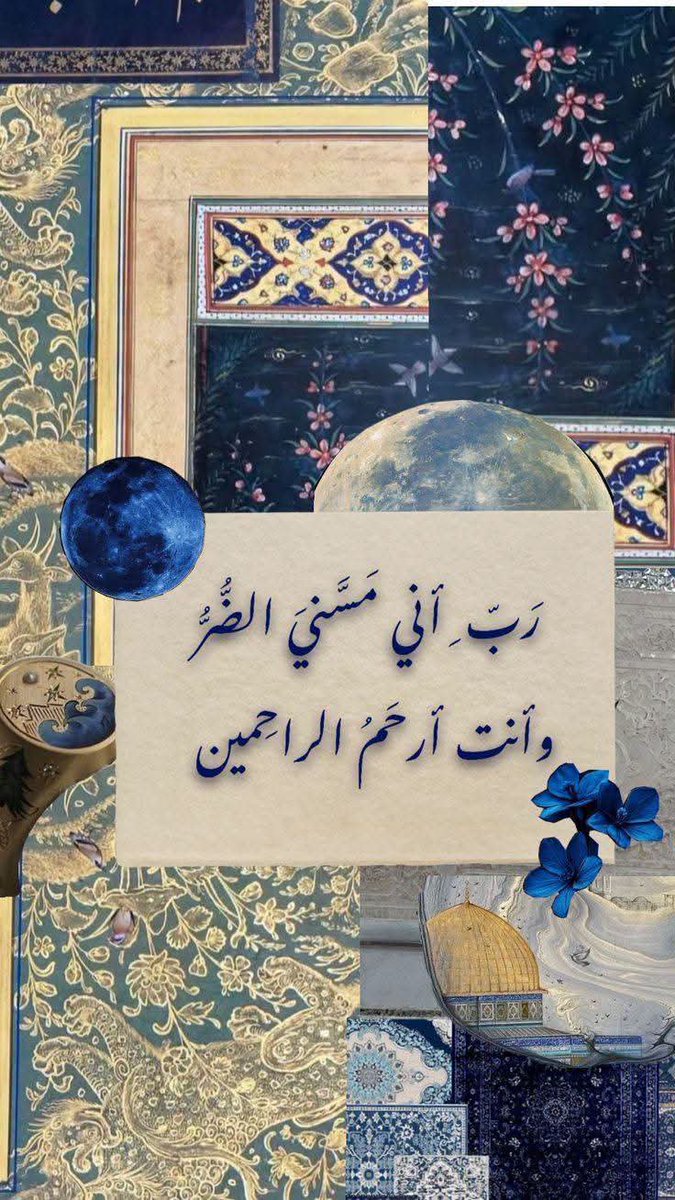 رَبّ ِ أني مَسَّنيَ الضُّرُّ
وأنت أرحَمُ الراحِمين